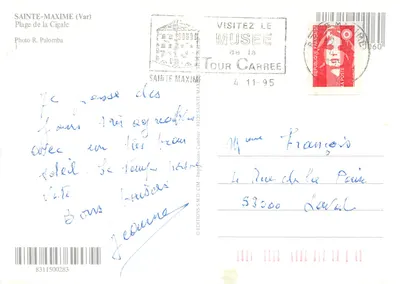 SAINTE-MAXIME (Var)
Plage de la Cigale
Photo R. Palomba
VISITEZ LE
MUSEE
de la
TOUR CARREE
SAINTE MAXIME
4-11-95
Je passe des
jours très agréables
avec un très beau
soleil. Le temps passe
vite
Bons baisers
Jeanne
Mme François
4 Rue de la Paix
53000 Laval
8311500283